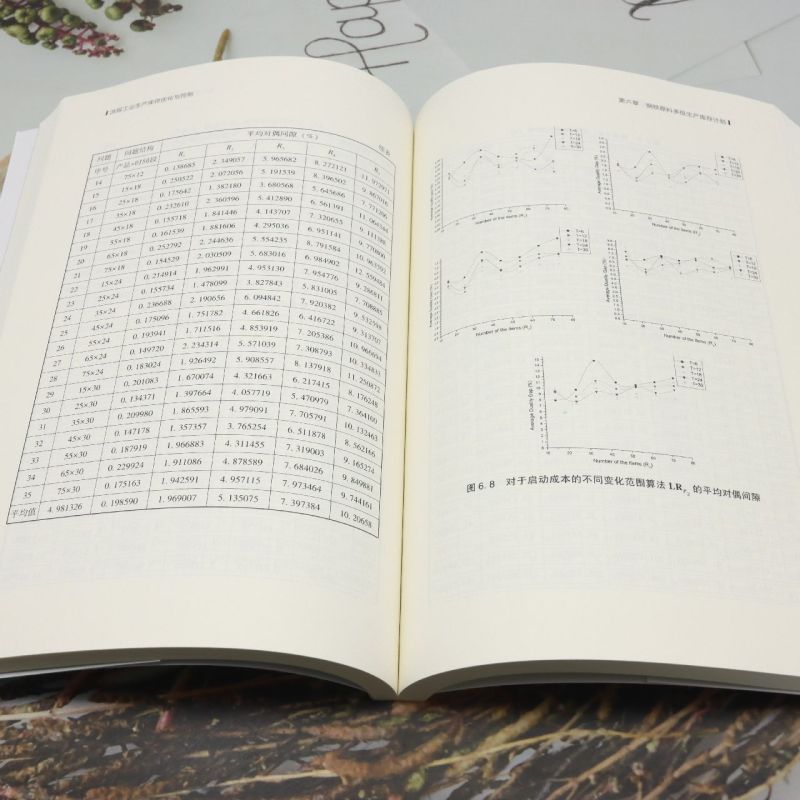 流程工业生产库存优化与控制
续表
问题序号 问题结构 产品×时间段 平均对偶间隙（%）
R₁ R₂ R₃ R₄ R₅
14 75×12 0.158685 2.349057 5.965682 8.272121
15 15×18 0.250522 2.072056 5.191539 8.396502 9.867016
16 25×18 0.175642 1.382180 3.680568 5.645686
17 35×18 0.232610 2.360596 5.412890 6.561393 11.064544
18 45×18 0.155718 1.841446 4.143707 7.320655 9.111388
19 55×18 0.161539 1.881606 4.295036 6.951141 9.770800
20 65×18 0.252792 2.244636 5.554235 8.791584 10.963592
21 75×18 0.154529 2.030509 5.683016 6.984902 12.559484
22 15×24 0.214914 1.962991 4.953130 7.954776 9.286811
23 25×24 0.155734 1.478099 3.827843 5.831005 7.708885
24 35×24 0.236688 2.190656 6.094842 7.920382 9.532598
25 45×24 0.175096 1.751782 4.661826 6.416722 9.313707
26 55×24 0.193941 1.711516 4.853919 7.205386 10.966694
27 65×24 0.149720 2.234314 5.571039 7.308793 10.334833
28 75×24 0.183024 1.926492 5.908557 8.137918 11.250872
29 15×30 0.201083 1.670074 4.321663 6.217415 8.176248
30 25×30 0.134371 1.397664 4.057719 5.470979 7.364160
31 35×30 0.209980 1.865593 4.979091 7.705791 10.132463
32 45×30 0.147178 1.357357 3.765254 6.511878 8.562166
33 55×30 0.187919 1.966883 4.311455 7.319003 9.165274
34 65×30 0.229924 1.911086 4.878589 7.684026 9.849881
35 75×30 0.175163 1.942591 4.957115 7.973464 9.744161
平均值 4.981326 0.198590 1.969007 5.135075 7.397384 10.20658
第六章 钢铁原料多级生产库存计划
Average Duality Gap (%)
Number of the Items (R₁)
T=6
T=12
T=18
T=24
T=30
Average Duality Gap (%)
Number of the Items (R₂)
T=6
T=12
T=18
T=24
T=30
Average Duality Gap (%)
Number of the Items (R₃)
T=6
T=12
T=18
T=24
T=30
Average Duality Gap (%)
Number of the Items (R₄)
T=6
T=12
T=18
T=24
T=30
Average Duality Gap (%)
Number of the Items (R₅)
T=6
T=12
T=18
T=24
T=30
图 6.8 对于启动成本的不同变化范围算法 LR_F₂ 的平均对偶间隙